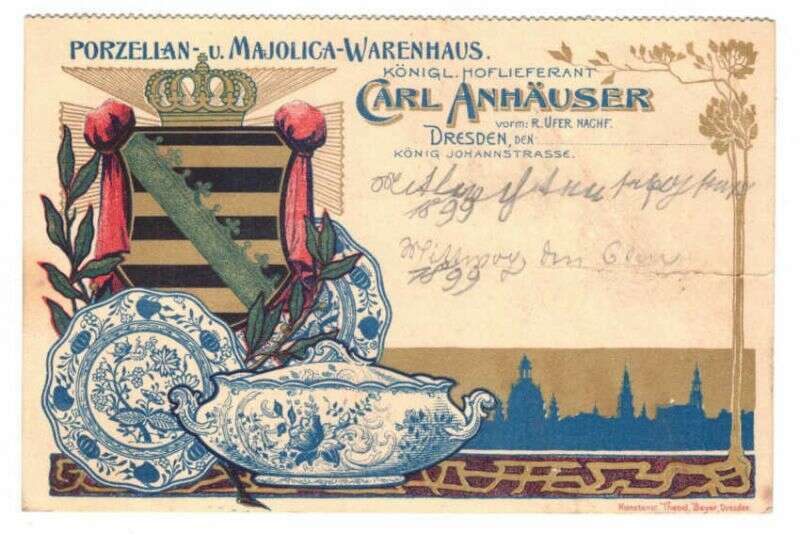 PORZELLAN- U. MAJOLICA-WARENHAUS.
KÖNIGL. HOFLIEFERANT
CARL ANHÄUSER
VORM: R. UFER NACHF.
DRESDEN, DEN
KÖNIG JOHANNSTRASSE.
1899
den
1899
Kunstanst. Theod. Beyer, Dresden.